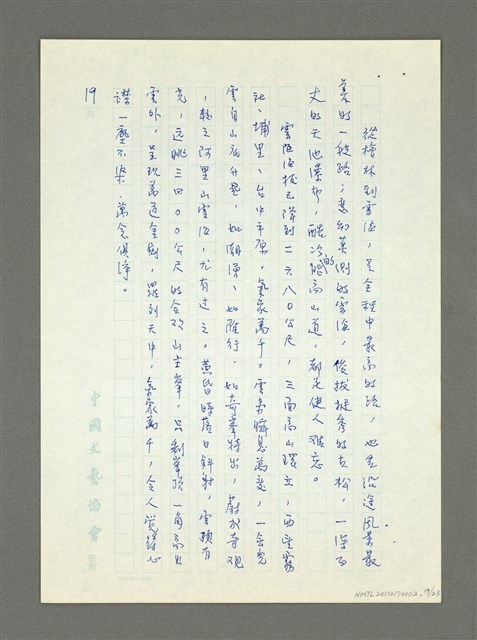 從檜林到雲海，是全程中最高的路，也是沿途風景最
美的一段路；變幻莫測的雲海，俊拔挺秀的古松，一瀉百
丈的天池瀑布，酷似的能高山道，都是使人難忘。
雲海海拔已降到二六八〇公尺，三面高山環立，西望霧
社、埔里、台中平原，氣象萬千。雲霧瞬息萬變，一會兒
雲自山谷升起，如潮湧、如雁行，如奇峯特出，蔚成奇觀
，較之阿里山雲海，尤有過之。黃昏時落日斜射，雲積有
光，遠眺三四〇〇公尺的合歡山主峯，只剩峯頂一角高出
雲外，呈現萬道金劍，羅列天中，氣象萬千，令人覺得心
襟一塵不染，萬念俱淨。
19
中國文藝協會
NMTL20110170002, 19/23